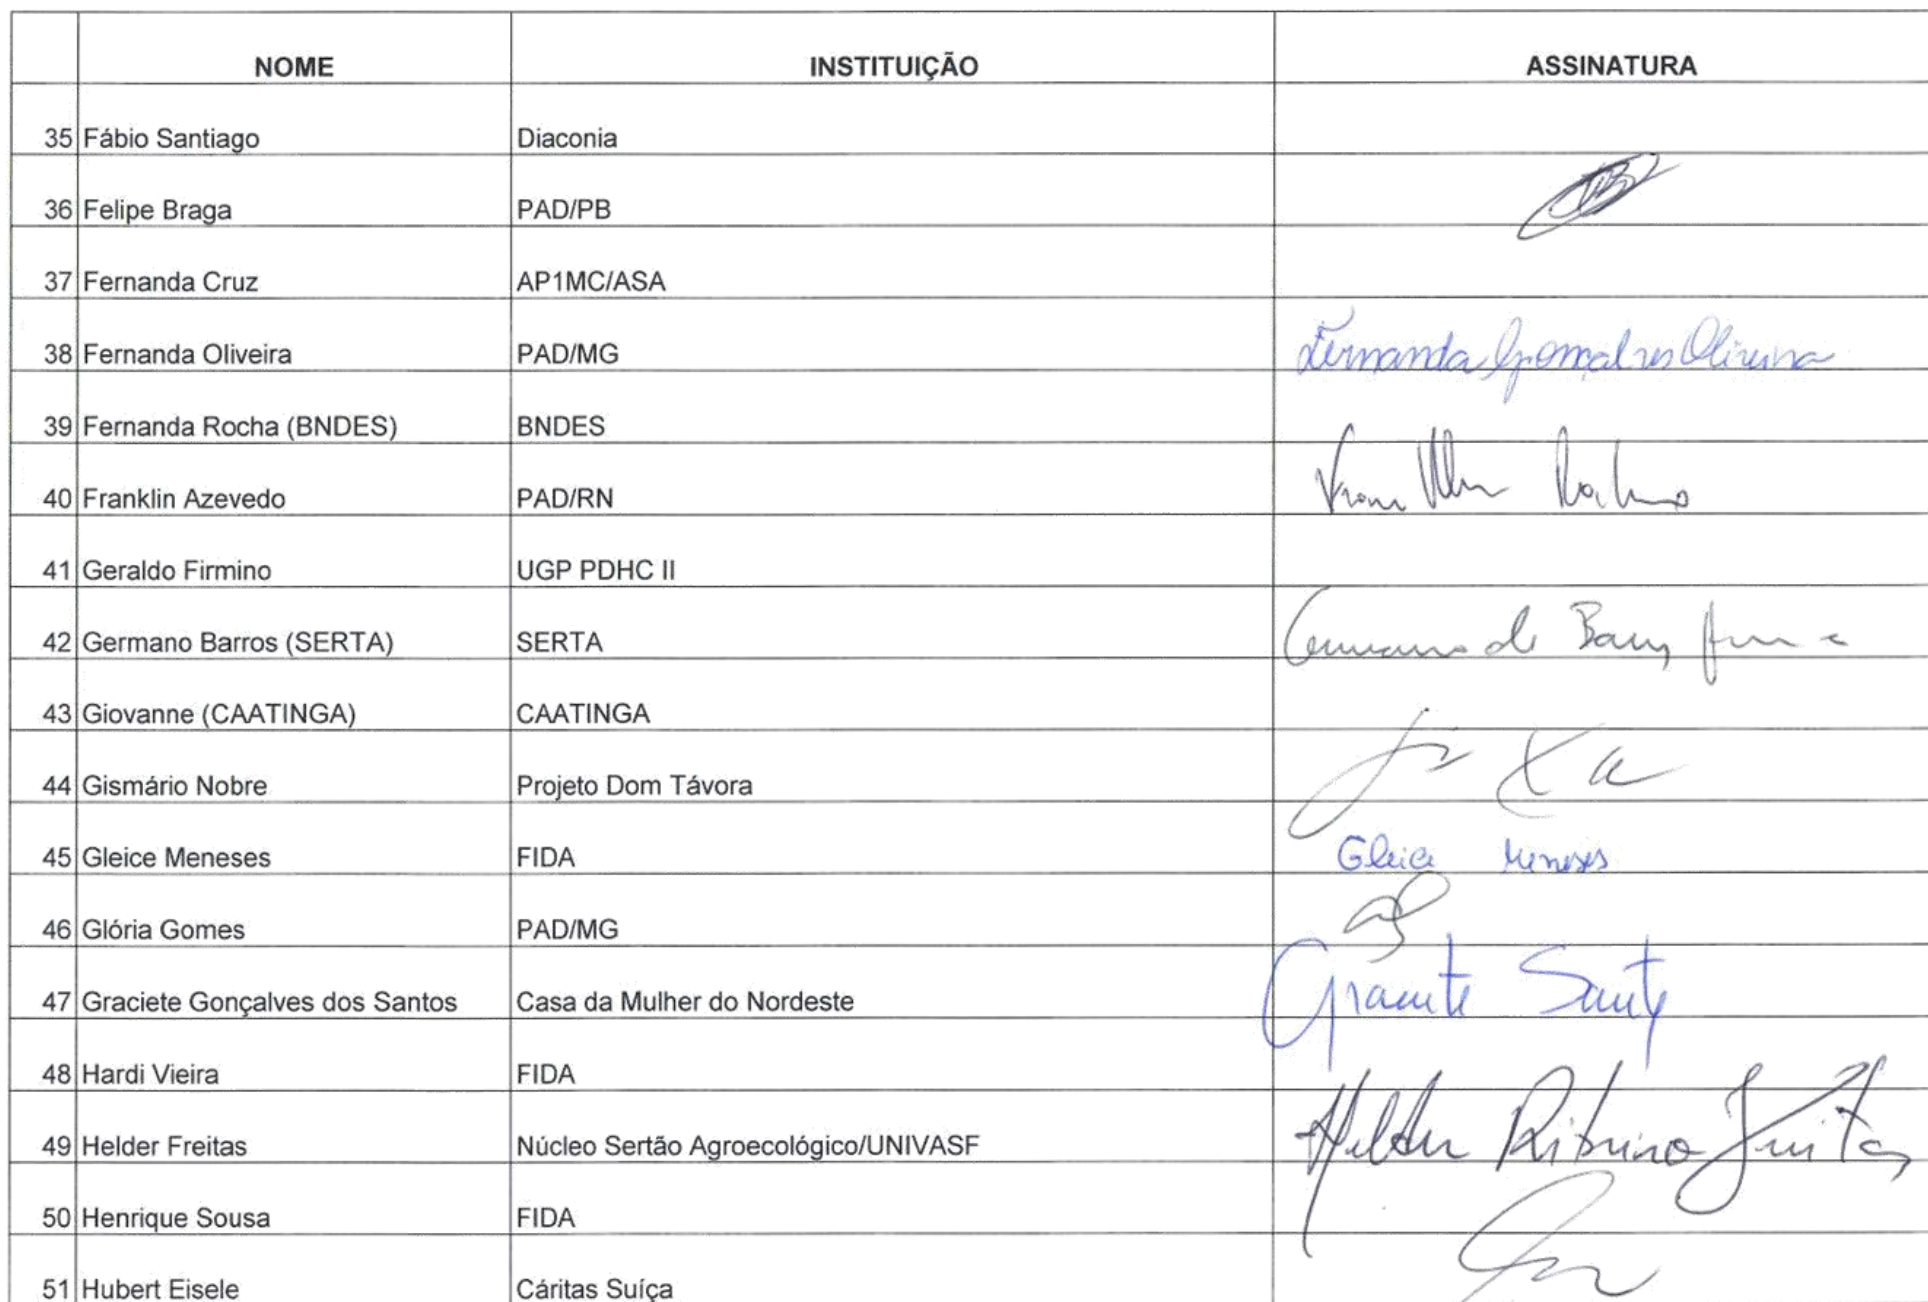 NOME INSTITUIÇÃO ASSINATURA
35 Fábio Santiago Diaconia
36 Felipe Braga PAD/PB
37 Fernanda Cruz AP1MC/ASA
38 Fernanda Oliveira PAD/MG Fernanda Gonçalves Oliveira
39 Fernanda Rocha (BNDES) BNDES
40 Franklin Azevedo PAD/RN
41 Geraldo Firmino UGP PDHC II
42 Germano Barros (SERTA) SERTA Germano de Barros
43 Giovanne (CAATINGA) CAATINGA
44 Gismário Nobre Projeto Dom Távora
45 Gleice Meneses FIDA Gleice Meneses
46 Glória Gomes PAD/MG
47 Graciete Gonçalves dos Santos Casa da Mulher do Nordeste Graciete Santos
48 Hardi Vieira FIDA
49 Helder Freitas Núcleo Sertão Agroecológico/UNIVASF Helder Ribeiro Freitas
50 Henrique Sousa FIDA
51 Hubert Eisele Cáritas Suíça